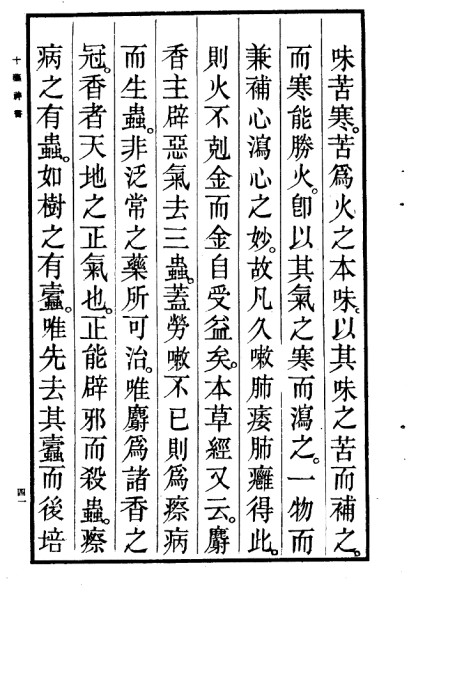 味苦寒。苦爲火之本味。以其味之苦而補之。
而寒能勝火。卽以其氣之寒而瀉之。一物而
兼補心瀉心之妙。故凡久嗽肺痿肺癰得此。
則火不剋金而金自受益矣。本草經又云。麝
香主辟惡氣去三蟲。蓋勞嗽不已則爲瘵病
而生蟲。非泛常之藥所可治。唯麝爲諸香之
冠。香者天地之正氣也。正能辟邪而殺蟲。瘵
病之有蟲。如樹之有蠹。唯先去其蠹而後培
十藥神書
四一